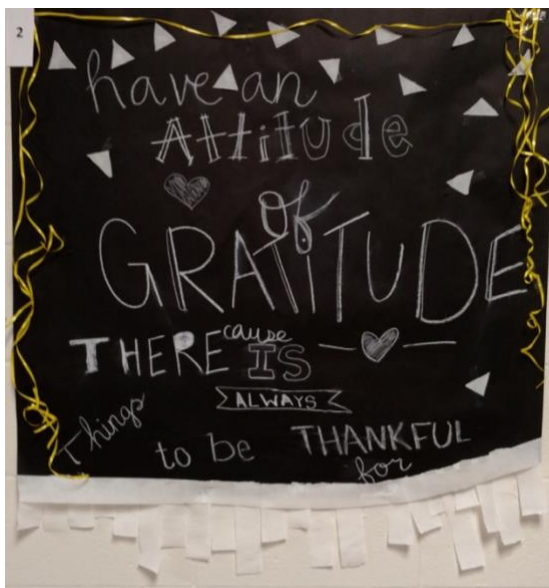 2
have an
Attitude
of
GRATITUDE
cause
THERE IS
ALWAYS
Things
to be THANKFUL
for